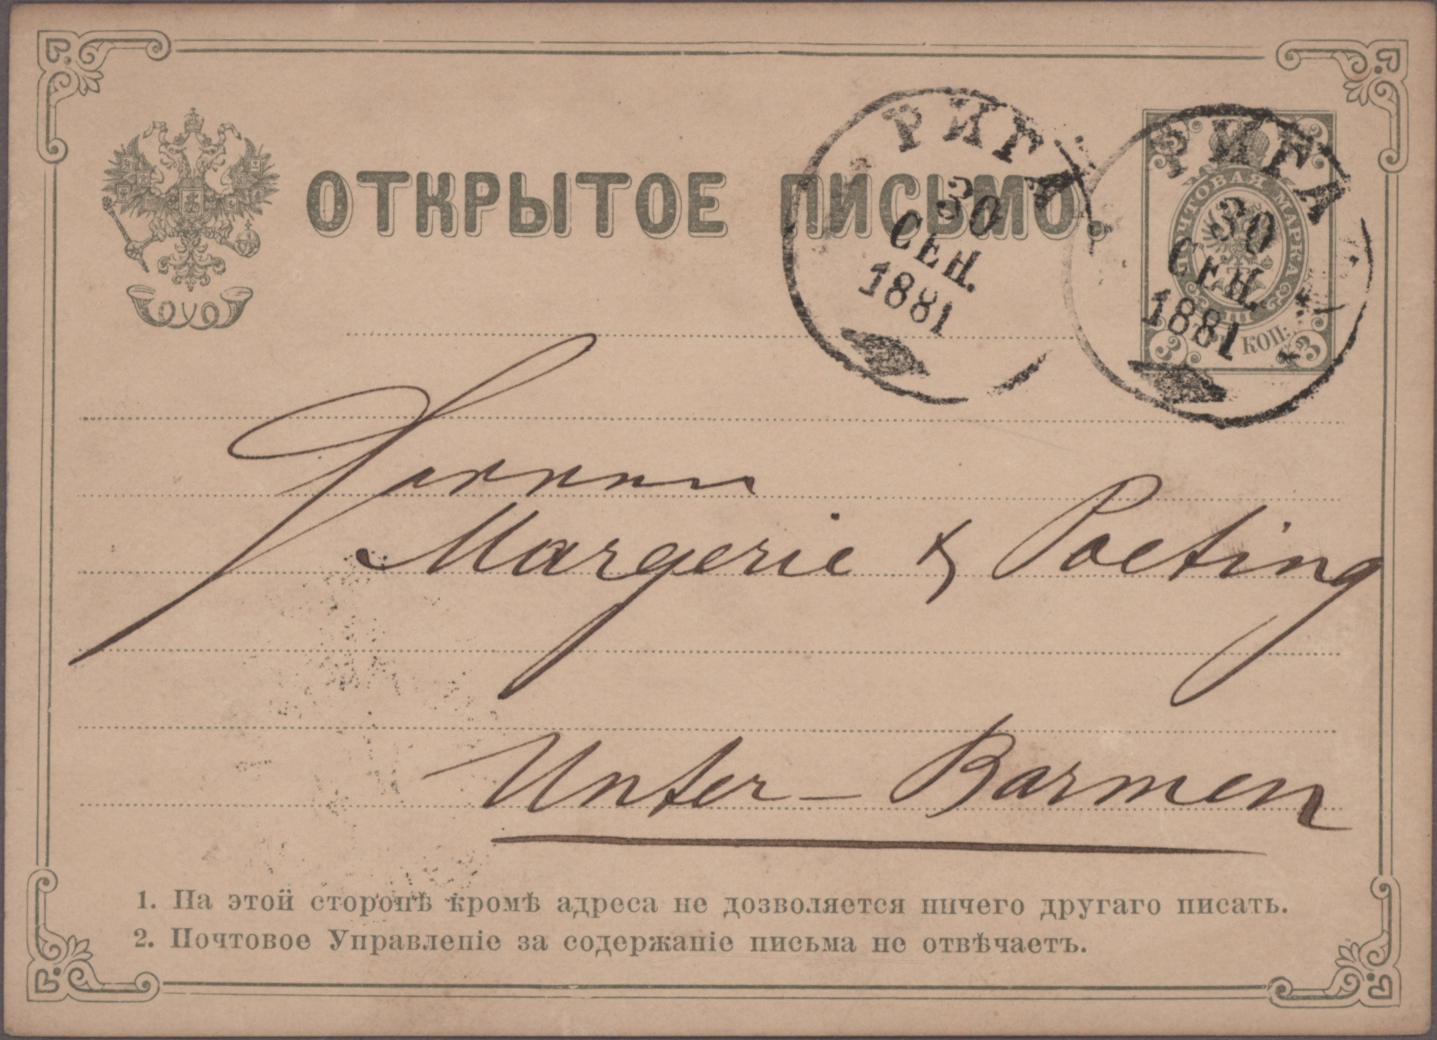 ОТКРЫТОЕ ПИСЬМО.
РИГА
30
СЕН.
1881
РИГА
30
СЕН.
1881
ПОЧТОВАЯ МАРКА
3 КОП. 3
Herren
Margerie & Poeting
Unter-Barmen
1. На этой сторонѣ кромѣ адреса не дозволяется ничего другаго писать.
2. Почтовое Управленіе за содержаніе письма не отвѣчаетъ.